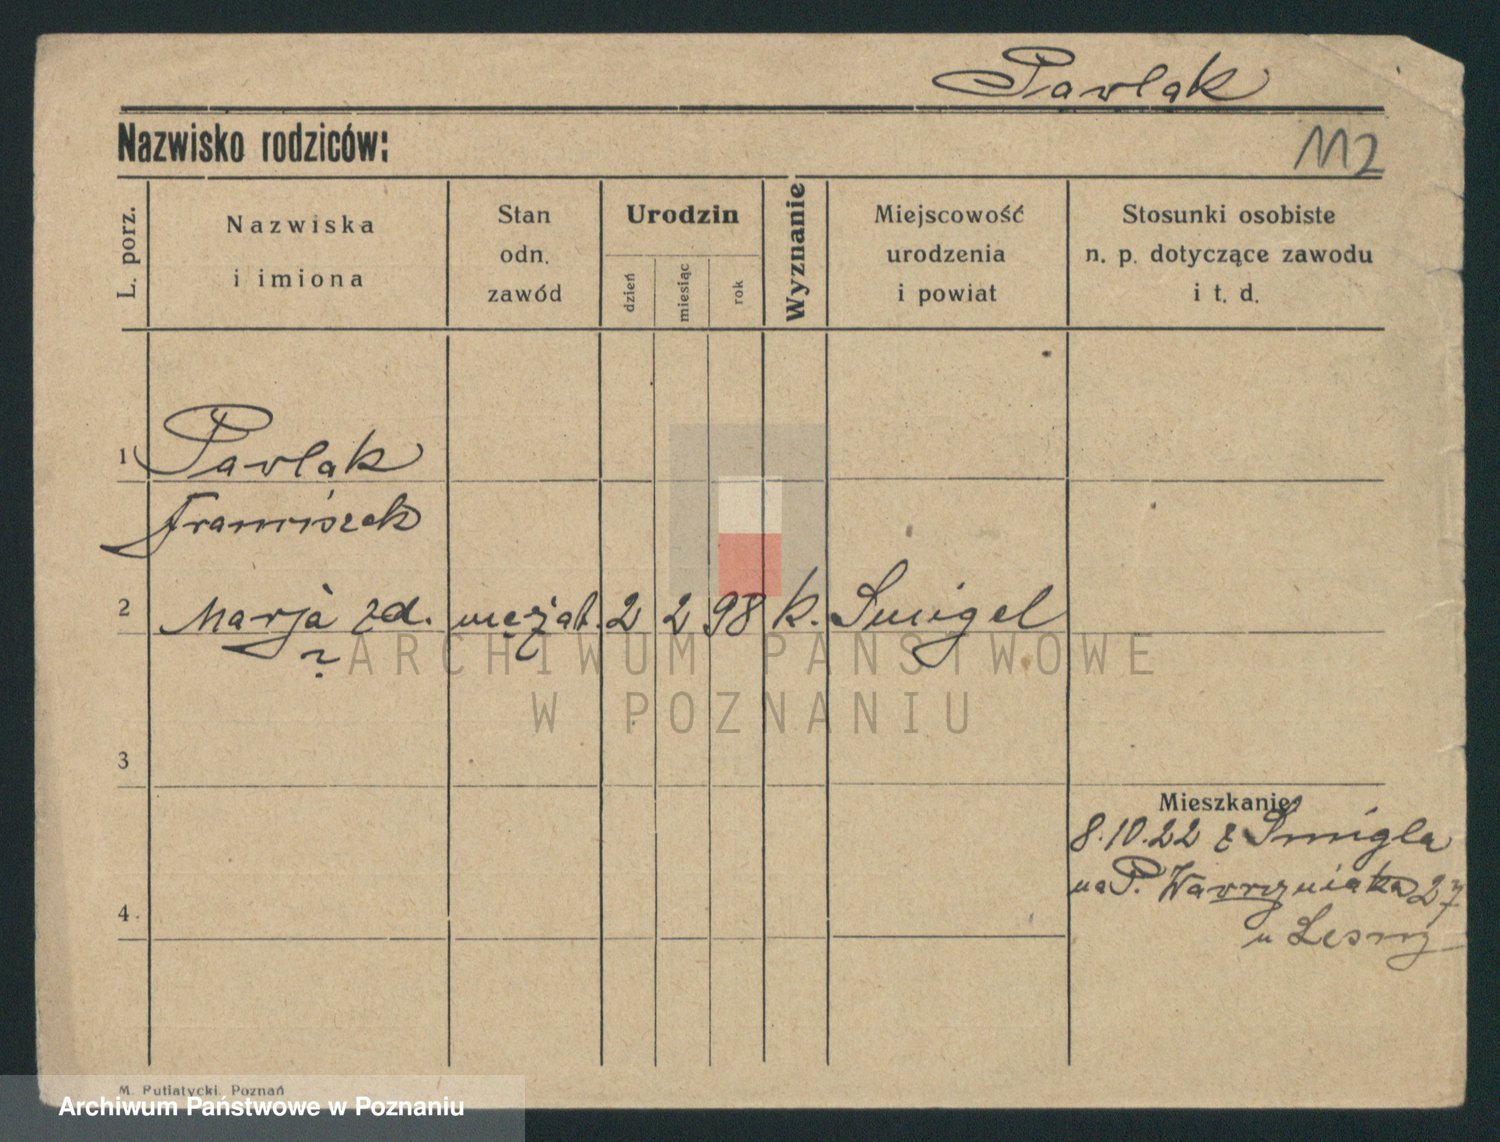 Pawlak
Nazwisko rodziców:
112
L. porz.
Nazwiska
i imiona
Stan
odn.
zawód
Urodzin
dzień
miesiąc
rok
Wyznanie
Miejscowość
urodzenia
i powiat
Stosunki osobiste
n. p. dotyczące zawodu
i t. d.
1 Pawlak
Franciszek
2 Marja zd. mężat. 2 2 98 k. Śmigel
?
ARCHIWUM PAŃSTWOWE
W POZNANIU
3
Mieszkanie
8.10.22 z Śmigla
na P. Wawrzyniaka 27
u Lesny
4
M. Putiatycki, Poznań
Archiwum Państwowe w Poznaniu